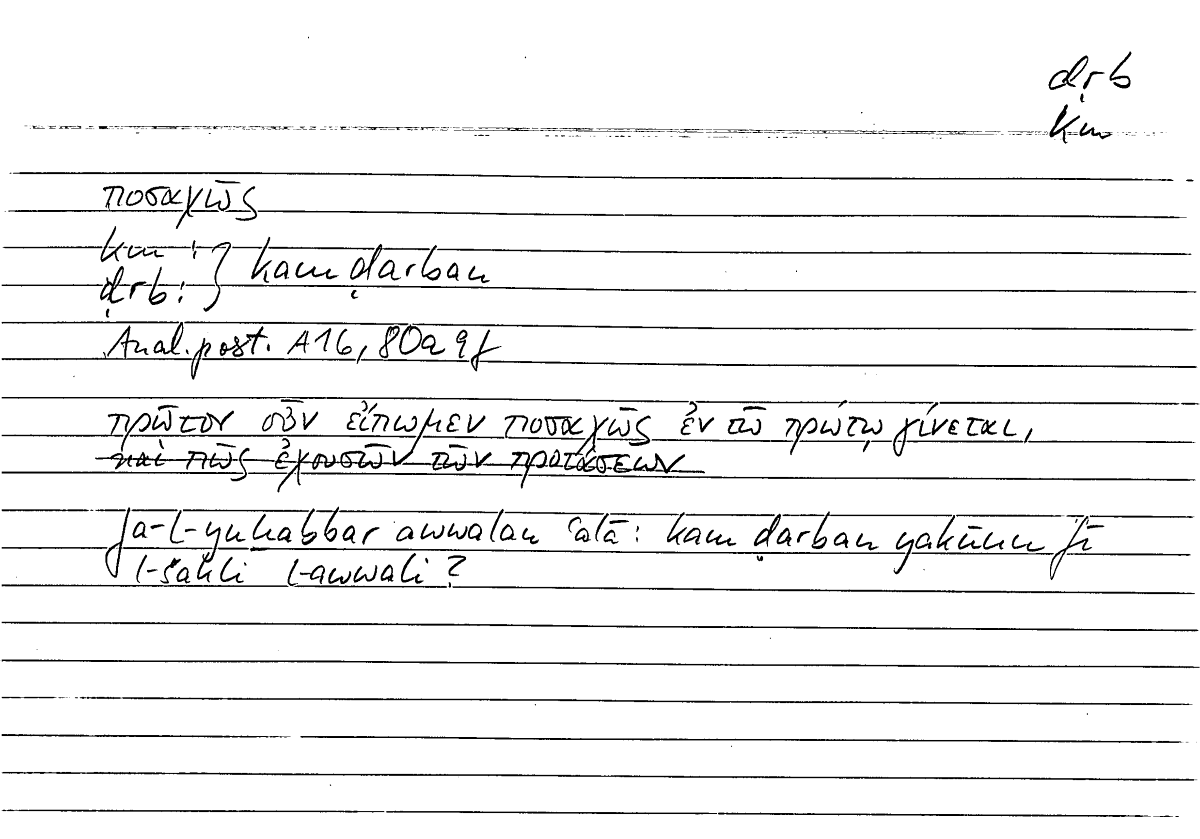 ḍrb
km
ποσαχῶς
km :
ḍrb : } kam ḍarban
Anal. post. A16, 80a 9f
πρῶτον οὖν εἴπωμεν ποσαχῶς ἐν τῷ πρώτῳ γίνεται,
καὶ πῶς ἐχουσῶν τῶν προτάσεων
fa-l-yuḫabbar awwalan ʿalā : kam ḍarban yakūnu fī
l-šakli l-awwali ?